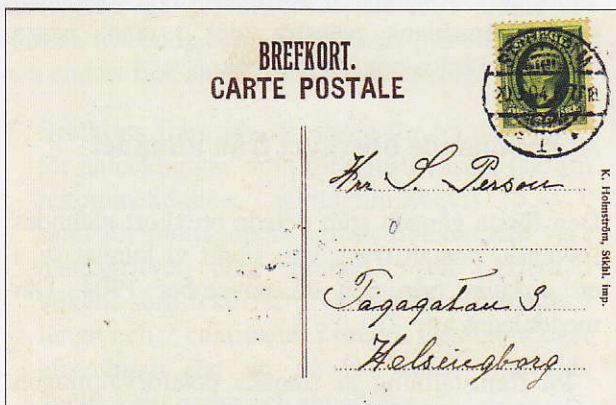 BREFKORT.
CARTE POSTALE
Hrr S. Person
Tagagatan 9
Helsingborg
K. Holmström, Sthlm. imp.